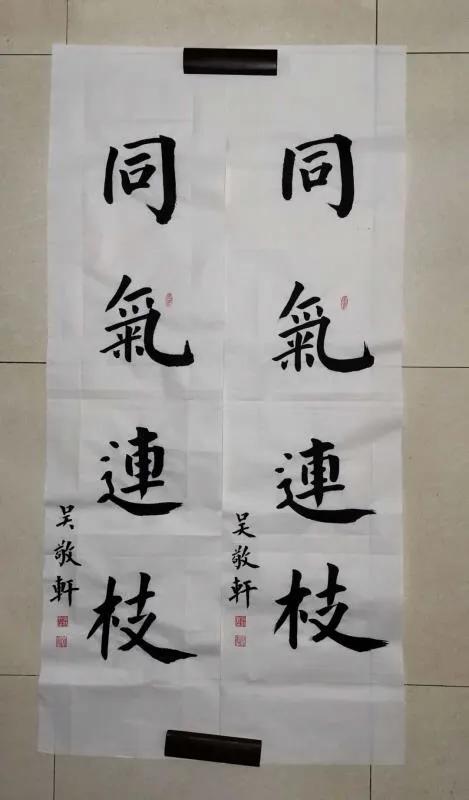 同氣連枝
吳敬軒
同氣連枝
吳敬軒